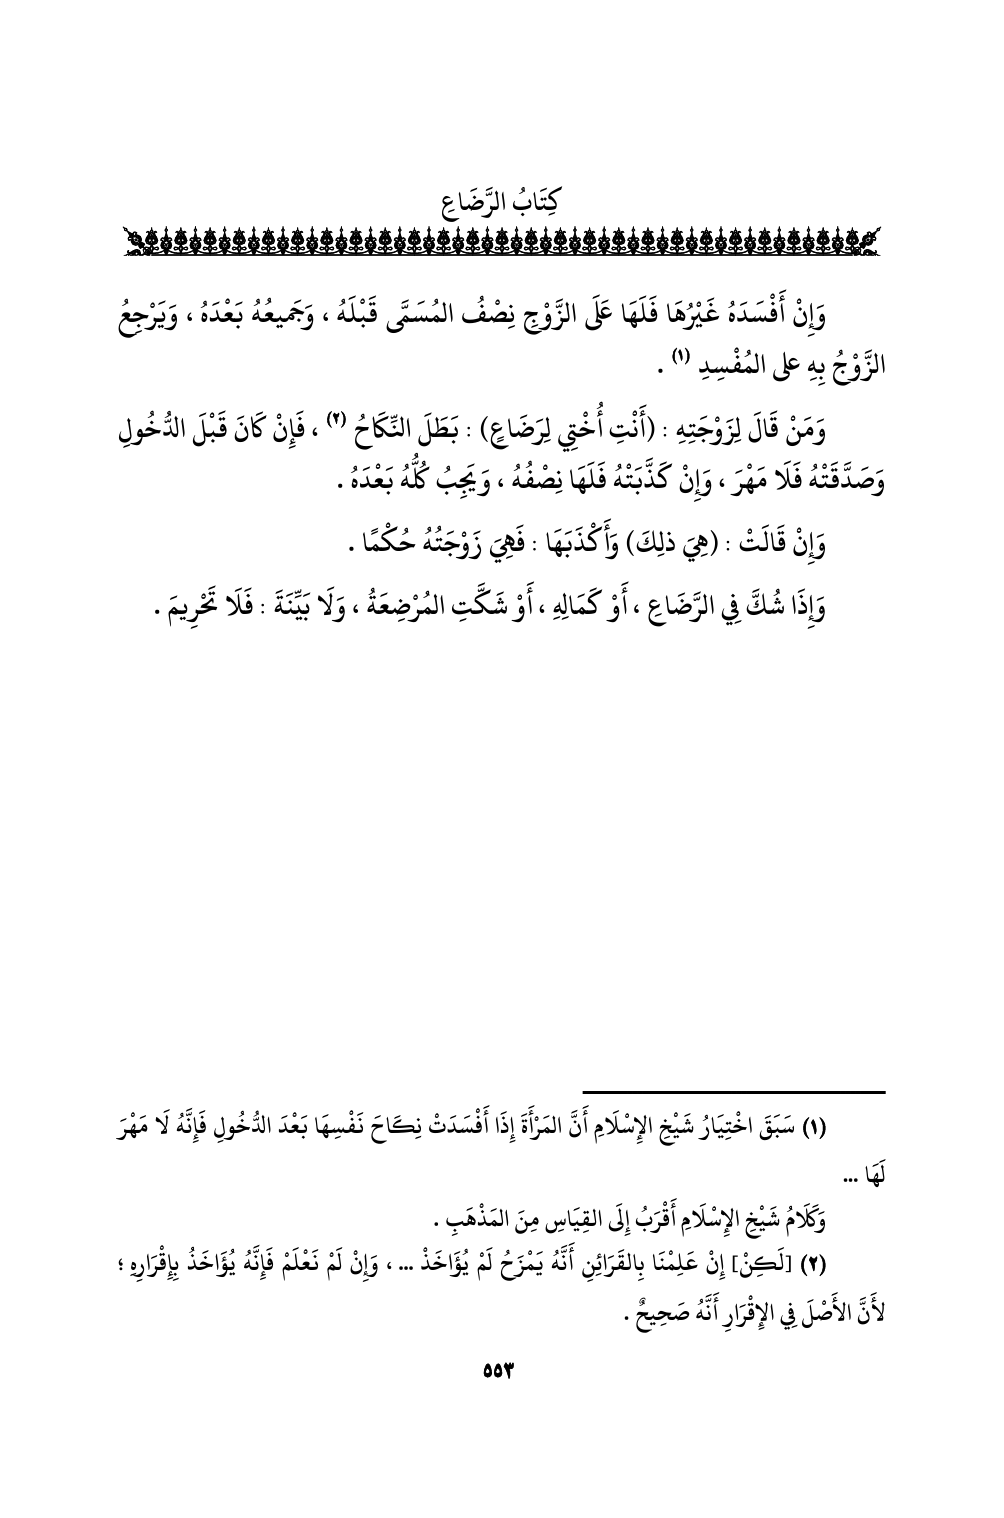 كِتَابُ الرَّضَاعِ
وَإِنْ أَفْسَدَهُ غَيْرُهَا فَلَهَا عَلَى الزَّوْجِ نِصْفُ المُسَمَّى قَبْلَهُ ، وَجَمِيعُهُ بَعْدَهُ ، وَيَرْجِعُ
الزَّوْجُ بِهِ على المُفْسِدِ (١) .
وَمَنْ قَالَ لِزَوْجَتِهِ : (أَنْتِ أُخْتِي لِرَضَاعٍ) : بَطَلَ النِّكَاحُ (٢) ، فَإِنْ كَانَ قَبْلَ الدُّخُولِ
وَصَدَّقَتْهُ فَلَا مَهْرَ ، وَإِنْ كَذَّبَتْهُ فَلَهَا نِصْفُهُ ، وَيَجِبُ كُلُّهُ بَعْدَهُ .
وَإِنْ قَالَتْ : (هِيَ ذلِكَ) وَأَكْذَبَهَا : فَهِيَ زَوْجَتُهُ حُكْمًا .
وَإِذَا شُكَّ فِي الرَّضَاعِ ، أَوْ كَمَالِهِ ، أَوْ شَكَّتِ المُرْضِعَةُ ، وَلَا بَيِّنَةَ : فَلَا تَحْرِيمَ .
(١) سَبَقَ اخْتِيَارُ شَيْخِ الإِسْلَامِ أَنَّ المَرْأَةَ إِذَا أَفْسَدَتْ نِكَاحَ نَفْسِهَا بَعْدَ الدُّخُولِ فَإِنَّهُ لَا مَهْرَ
لَهَا ...
وَكَلَامُ شَيْخِ الإِسْلَامِ أَقْرَبُ إِلَى القِيَاسِ مِنَ المَذْهَبِ .
(٢) [لَكِنْ] إِنْ عَلِمْنَا بِالقَرَائِنِ أَنَّهُ يَمْزَحُ لَمْ يُؤَاخَذْ ... ، وَإِنْ لَمْ نَعْلَمْ فَإِنَّهُ يُؤَاخَذُ بِإِقْرَارِهِ ؛
لأَنَّ الأَصْلَ فِي الإِقْرَارِ أَنَّهُ صَحِيحٌ .
٥٥٣